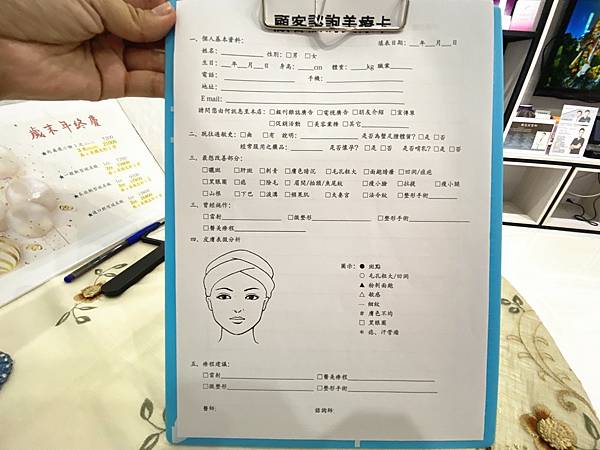 顧客認詢美療卡
一、個人基本資料: 填表日期:__年__月__日
姓名:________ 性別:□男 □女
生日:__年__月__日 身高:____cm 體重:____kg 職業____
電話:________ 手機:________
地址:________
E mail:________
請問您由何訊息至本店: □報刊雜誌廣告 □電視廣告 □朋友介紹 □宣傳單
□促銷活動 □美容業務 □其它____
二、既往過敏史: □無 □有 說明:________ 是否為蟹足腫體質? □是 □否
經常服用之藥品:________ 是否懷孕? □是 □否 是否哺乳? □是 □否
三、最想改善部分:
□曬斑 □肝斑 □刺青 □膚色暗沉 □毛孔粗大 □面皰暗瘡 □凹洞/痘疤
□黑眼圈 □痣 □除毛 □眉間/抬頭/魚尾紋 □瘦小臉 □拉提 □瘦小腿
□山根 □下巴 □淚溝 □蘋果肌 □夫妻宮 □法令紋 □整形手術____
三、曾經施作:
□雷射________ □微整形________ □整形手術________
□醫美療程________
四、皮膚表徵分析
圖示: ● 斑點
○ 毛孔粗大/凹洞
▲ 粉刺面皰
△ 敏感
— 細紋
# 膚色不均
□ 黑眼圈
* 痣、汗管瘤
五、療程建議:
□雷射________ □醫美療程________
□微整形________ □整形手術________
醫師: 諮詢師:
歲末年終慶